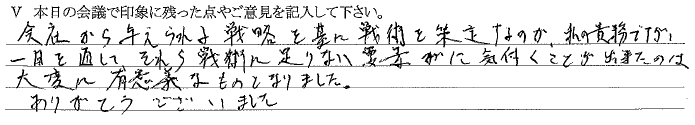 Ⅴ 本日の会議で印象に残った点やご意見を記入して下さい。
会社から与えられる戦略を基に戦術を策定するのが、私の責務ですが、
一日を通して、それら戦術に足りない要素がに気付くことが出来たのは
大変に有意義なものとなりました。
ありがとうございました